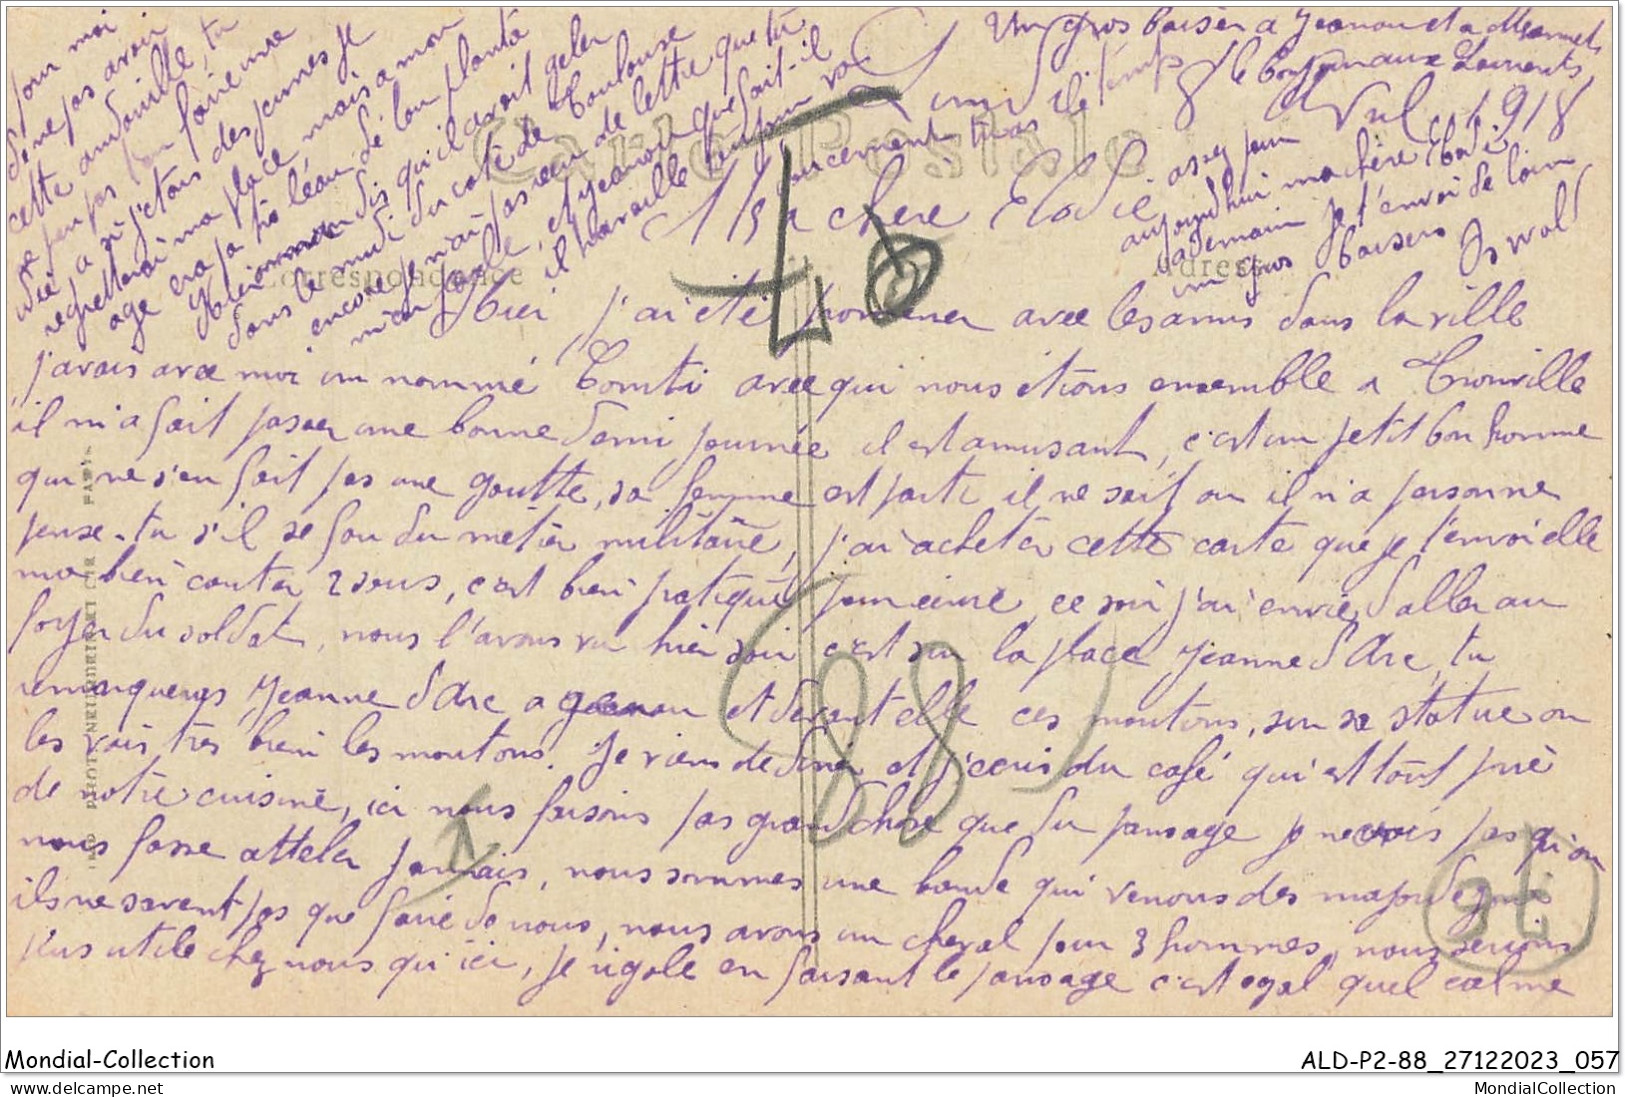 Carte Postale
Correspondance
Adresse
Lundi 1918
Ma chère Elodie
Hier j'ai été promener avec les amis dans la ville
j'avais avec moi un nommé avec qui nous étions ensemble a Trouville
il m'a fait passer une bonne demi journée il est amusant, c'est un petit bonhomme
qui ne s'en fait pas une goutte, sa femme est parti il ne sait ou il n'a personne
pense-tu s'il se fou du métier militaire, j'ai acheter cette carte que je t'envoi elle
ma bien couter 2 sous, c'est bien pratique pour écrire, ce soir j'ai envie d'aller au
foyer du soldat, nous l'avons vu hier soir c'est sur la place Jeanne d'Arc, tu
remarqueras Jeanne d'Arc a genou et devant elle ces moutons, sur sa statue on
les vois très bien les moutons. Je viens de diner et j'écris du café qui est tout prè
de notre cuisine, ici nous faisons pas grand chose que du pansage je ne vois pas qu'on
nous fasse atteler jamais, nous sommes une bande qui venons des majordegmé
ils ne savent pas que faire de nous, nous avons un cheval pour 3 hommes, nous serions
plus utile chez nous qu'ici, je rigole en faisant le pansage c'est egal quel calme
pour moi
de ne pas avoir
cette andouille, tu
ne peu pas t'en faire une
idée, a si j'etais des jeunes je
regretterai ma place mais a mon
age
dans le midi du coté de Toulouse
encore je n'ai pas reçu de lettre que tu
m'en parle, et Jeanot que fait-il
il travaille toujour
as il temps
assez pour
aujourd'hui ma chère Elodie
a demain je t'envoi de loin
un gros baisers
Oswald
Un gros baiser a Jeanot et a Mamet
le bonjour aux Laurents
88
1
Mondial-Collection
ALD-P2-88_27122023_057
MondialCollection